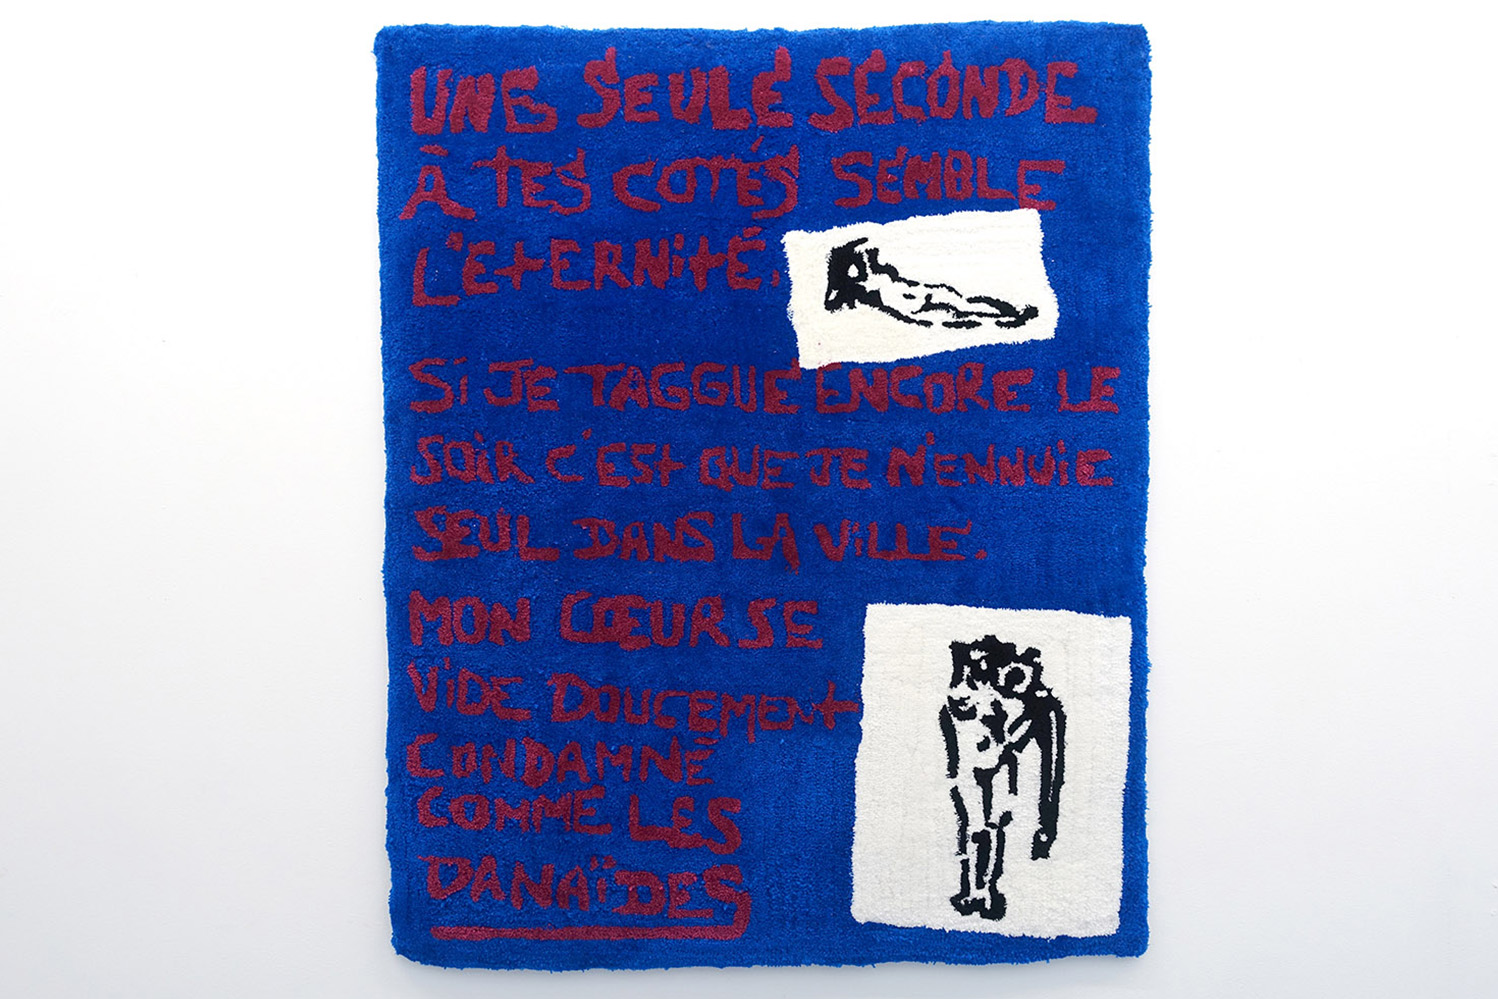 UNE SEULE SECONDE
À TES COTÉS SEMBLE
L'ETERNITÉ.
Si JE TAGGUE ENCORE LE
SOiR C'EST QUE JE N'ENNUiE
SEUL DANS LA ViLLE.
MON CŒUR SE
ViDE DOUCEMENT
CONDAMNÉ
COMME LES
DANAÏDES